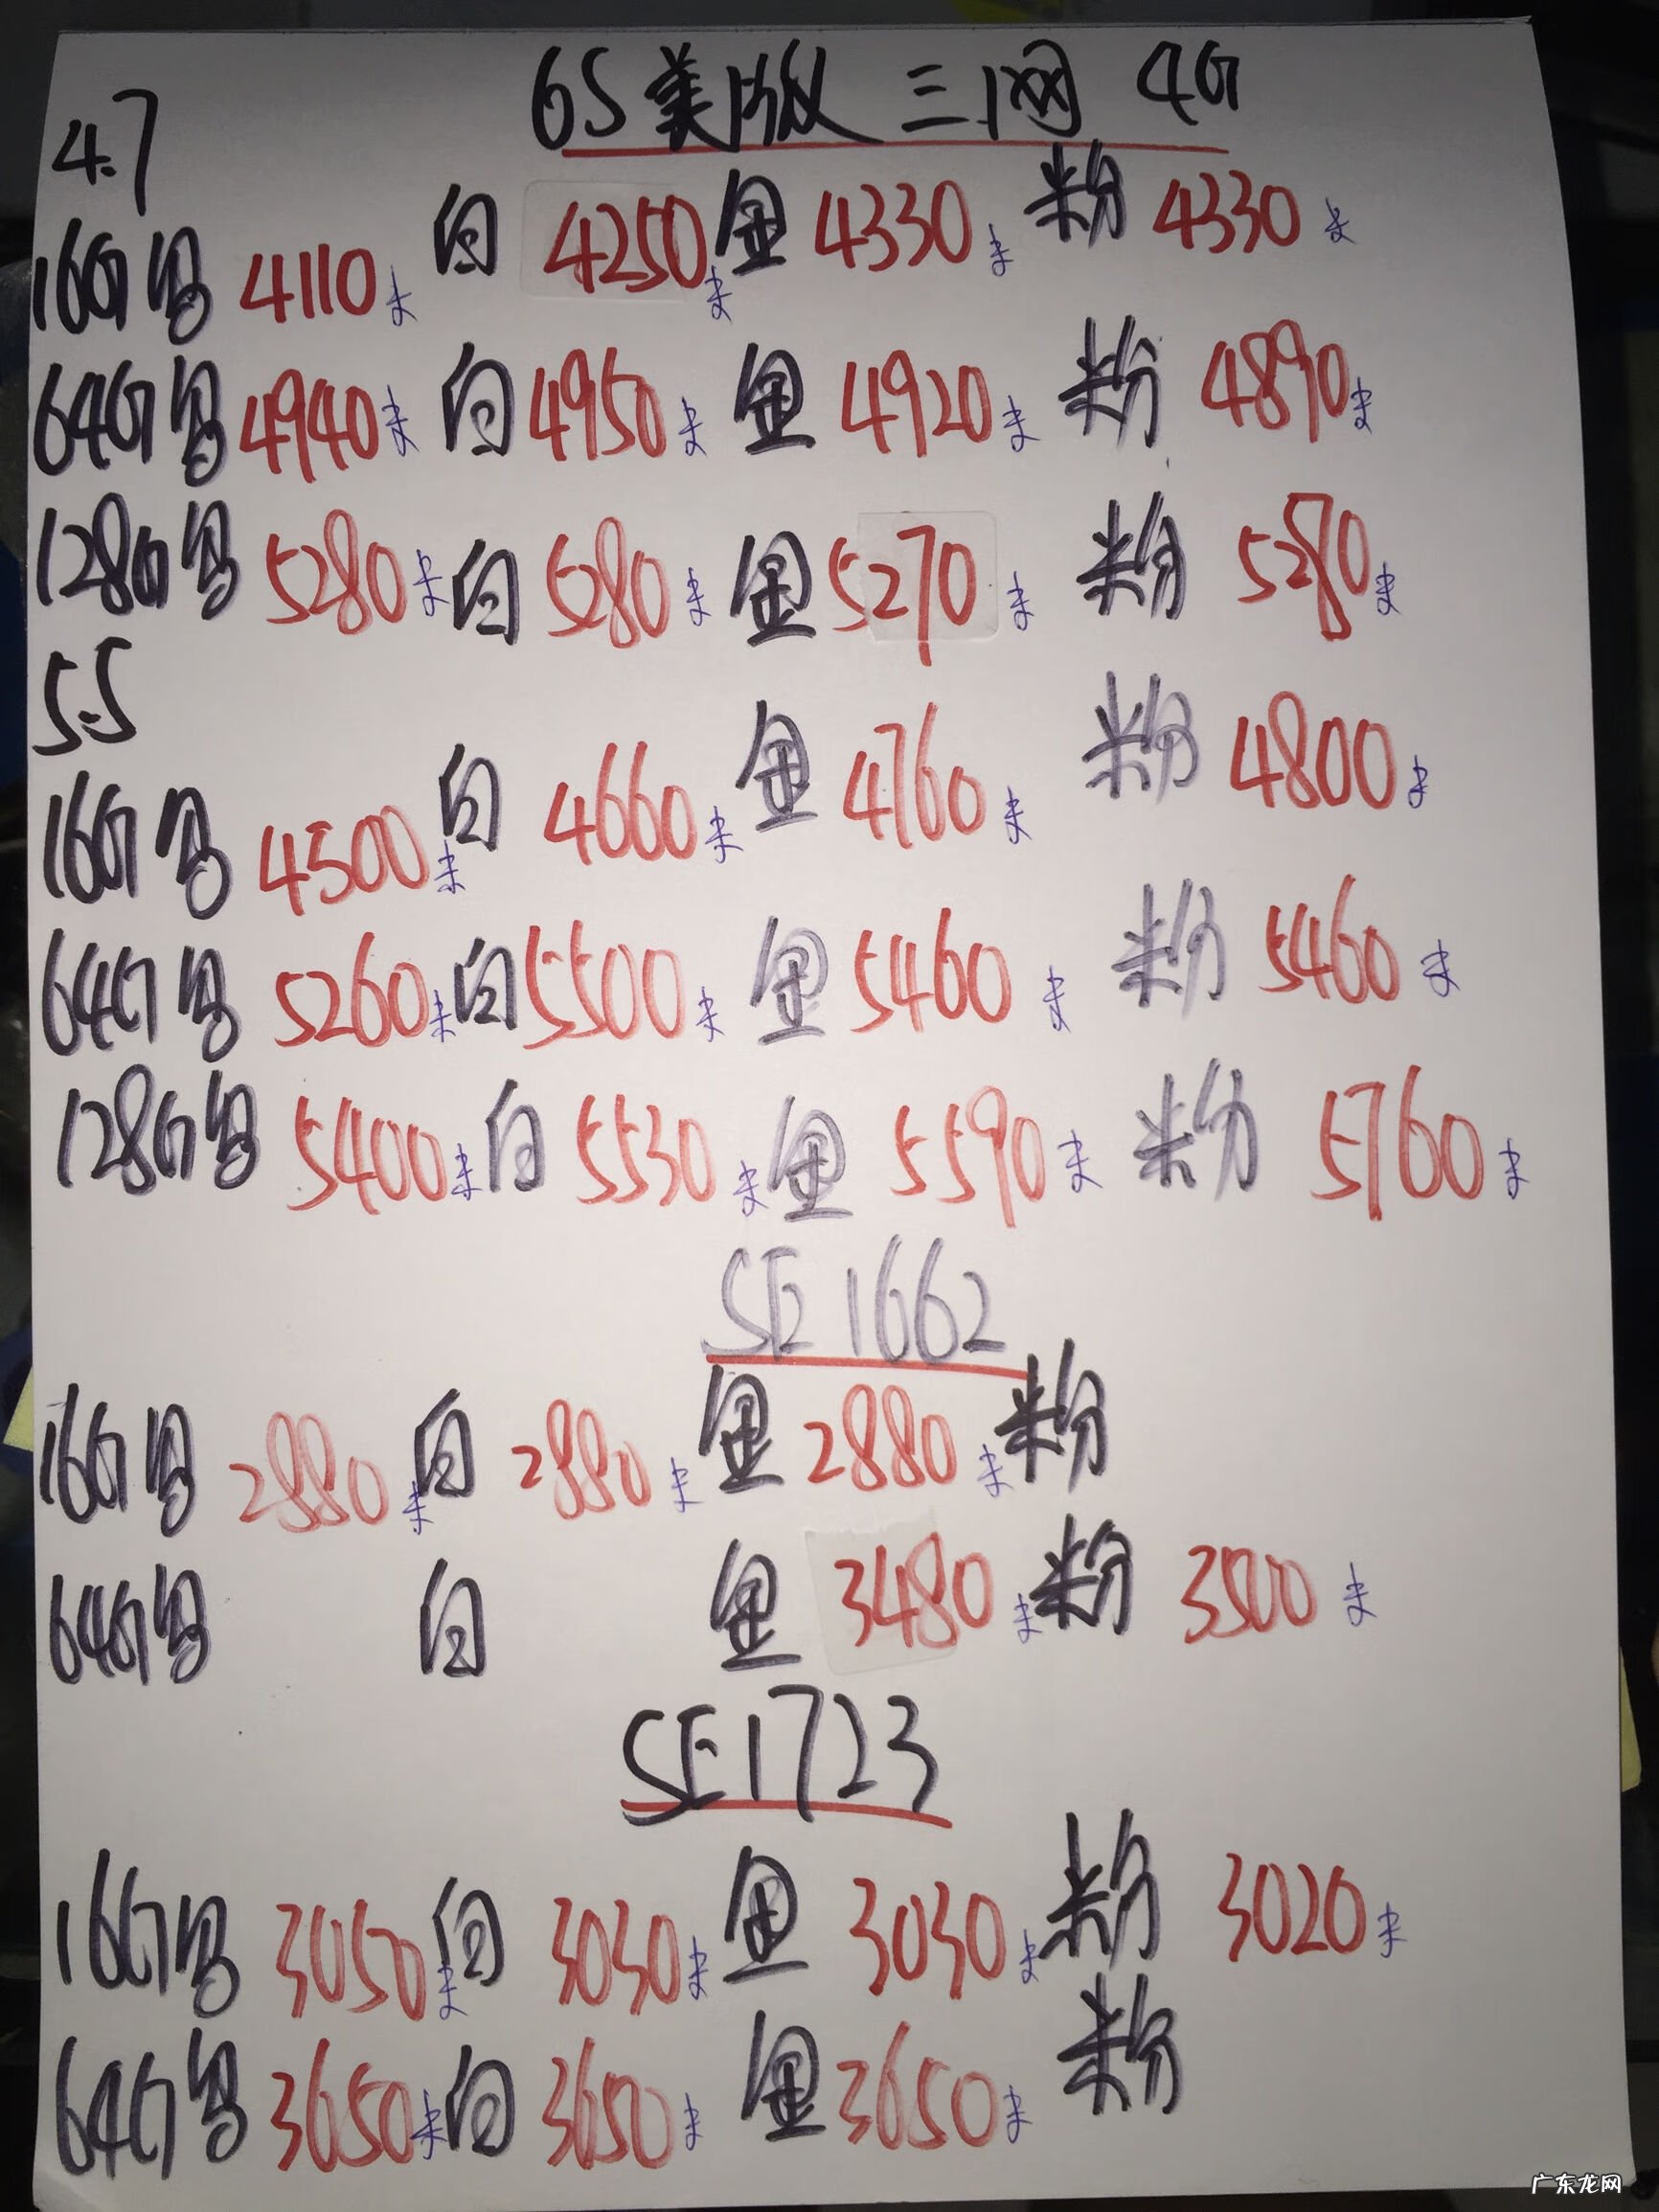 6S美版 三网 4G
4.7
16G 黑 4110未 白 4250未 金 4330未 粉 4330未
64G 黑 4940未 白 4950未 金 4920未 粉 4890未
128G 黑 5280未 白 5280未 金 5270未 粉 5280未
5.5
16G 黑 4500未 白 4660未 金 4760未 粉 4800未
64G 黑 5260未 白 5500未 金 5460未 粉 5460未
128G 黑 5400未 白 5530未 金 5590未 粉 5760未
SE 1662
16G 黑 2880未 白 2880未 金 2880未 粉
64G 黑 白 金 3480未 粉 3500未
SE1723
16G 黑 3050未 白 3030未 金 3030未 粉 3020未
64G 黑 3650未 白 3650未 金 3650未 粉
广东龙网